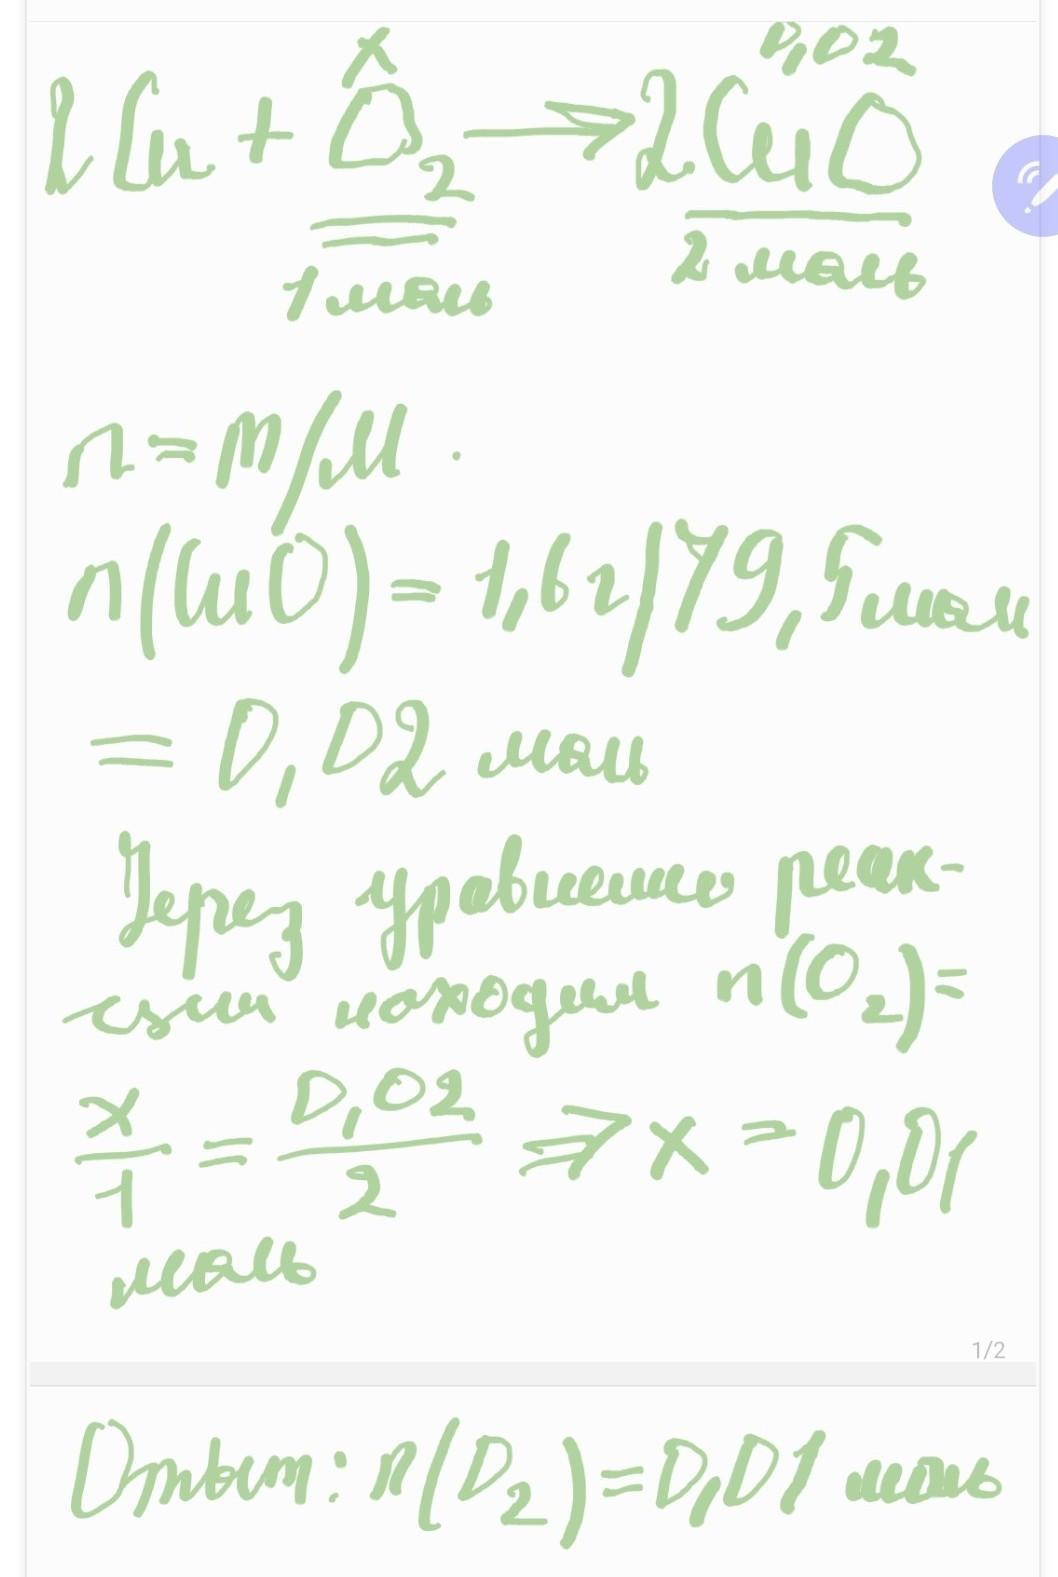 x 0,02
2Cu + O₂ → 2CuO
1 моль 2 моль
n = m/M.
n(CuO) = 1,6 г/79,5 моль
= 0,02 моль
Через уравнение реак-
ции находим n(O₂)=
x/1 = 0,02/2 ⇒ x = 0,01
моль
1/2
Ответ: n(O₂)=0,01 моль